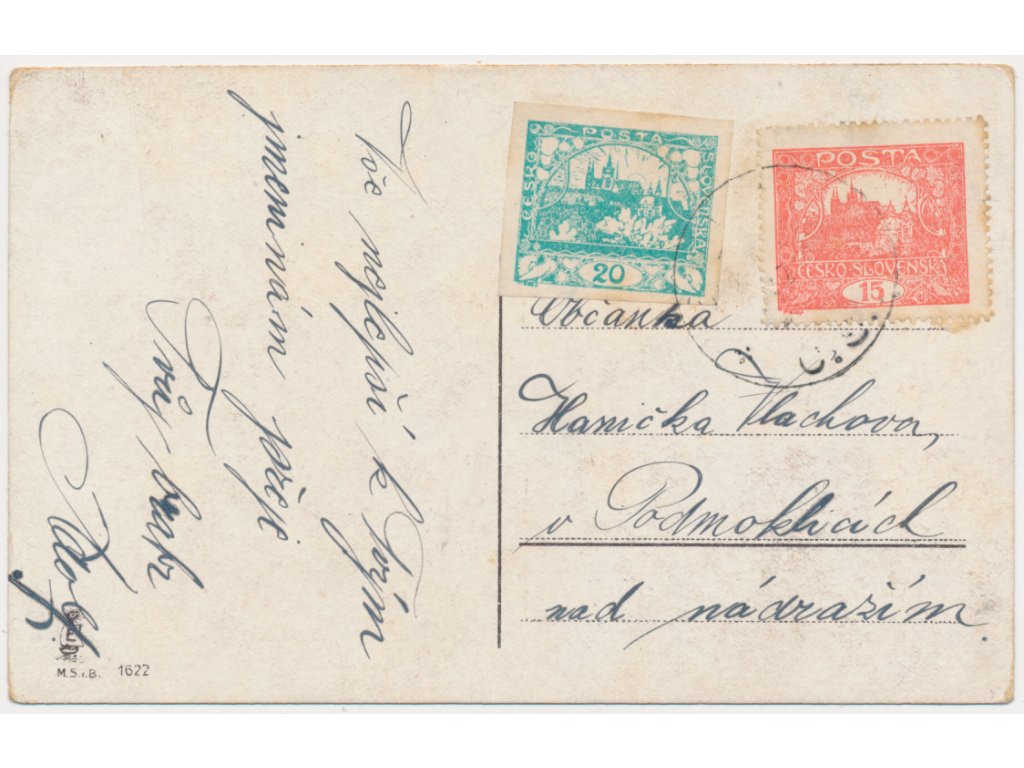 Vše nejlepší k Tvým
jmeninám přeje
Tvůj bratr
Adolf
M.S.i.B. 1622
POSTA
ČESKO SLOVENSKÁ
20
POSTA
ČESKO-SLOVENSKÁ
15
Občanka
Hanička Vlachova,
v Podmoklicích
nad nádražím